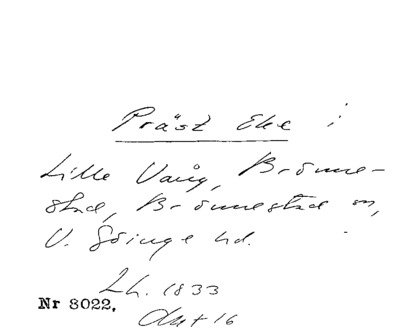 Präst Eke i
Lille Vång, Brönne-
stad, Brönnestad sn,
V. Göinge hd.
Lh. 1833
Nr 8022.
16